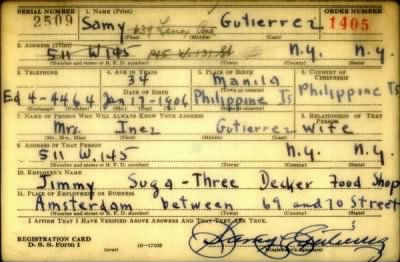 SERIAL NUMBER 1. NAME (Print) ORDER NUMBER
2509 Samy Gutierrez 1405
639 Lenox Ave
(First) (Middle) (Last)
2. ADDRESS (Print)
511 W 145 145 W. 131 St N.y. N.y.
(Number and street or R. F. D. number) (Town) (County) (State)
3. TELEPHONE 4. AGE IN YEARS 5. PLACE OF BIRTH 6. COUNTRY OF CITIZENSHIP
34 Manila
DATE OF BIRTH (Town or county)
Ed 4-4464 Jan 17-1906 Philippine Is Philippine Is
(Exchange) (Number) (Mo.) (Day) (Yr.) (State or country)
7. NAME OF PERSON WHO WILL ALWAYS KNOW YOUR ADDRESS 8. RELATIONSHIP OF THAT PERSON
Mrs. Inez Gutierrez Wife
(Mr., Mrs., Miss) (First) (Middle) (Last)
9. ADDRESS OF THAT PERSON
511 W. 145 N.y. N.y.
(Number and street or R. F. D. number) (Town) (County) (State)
10. EMPLOYER'S NAME
Jimmy Suga-Three Decker Food Shop
11. PLACE OF EMPLOYMENT OR BUSINESS
Amsterdam between 69 and 70 Street
(Number and street or R. F. D. number) (Town) (County) (State)
I AFFIRM THAT I HAVE VERIFIED ABOVE ANSWERS AND THAT THEY ARE TRUE.
REGISTRATION CARD
D. S. S. Form 1 16-17105